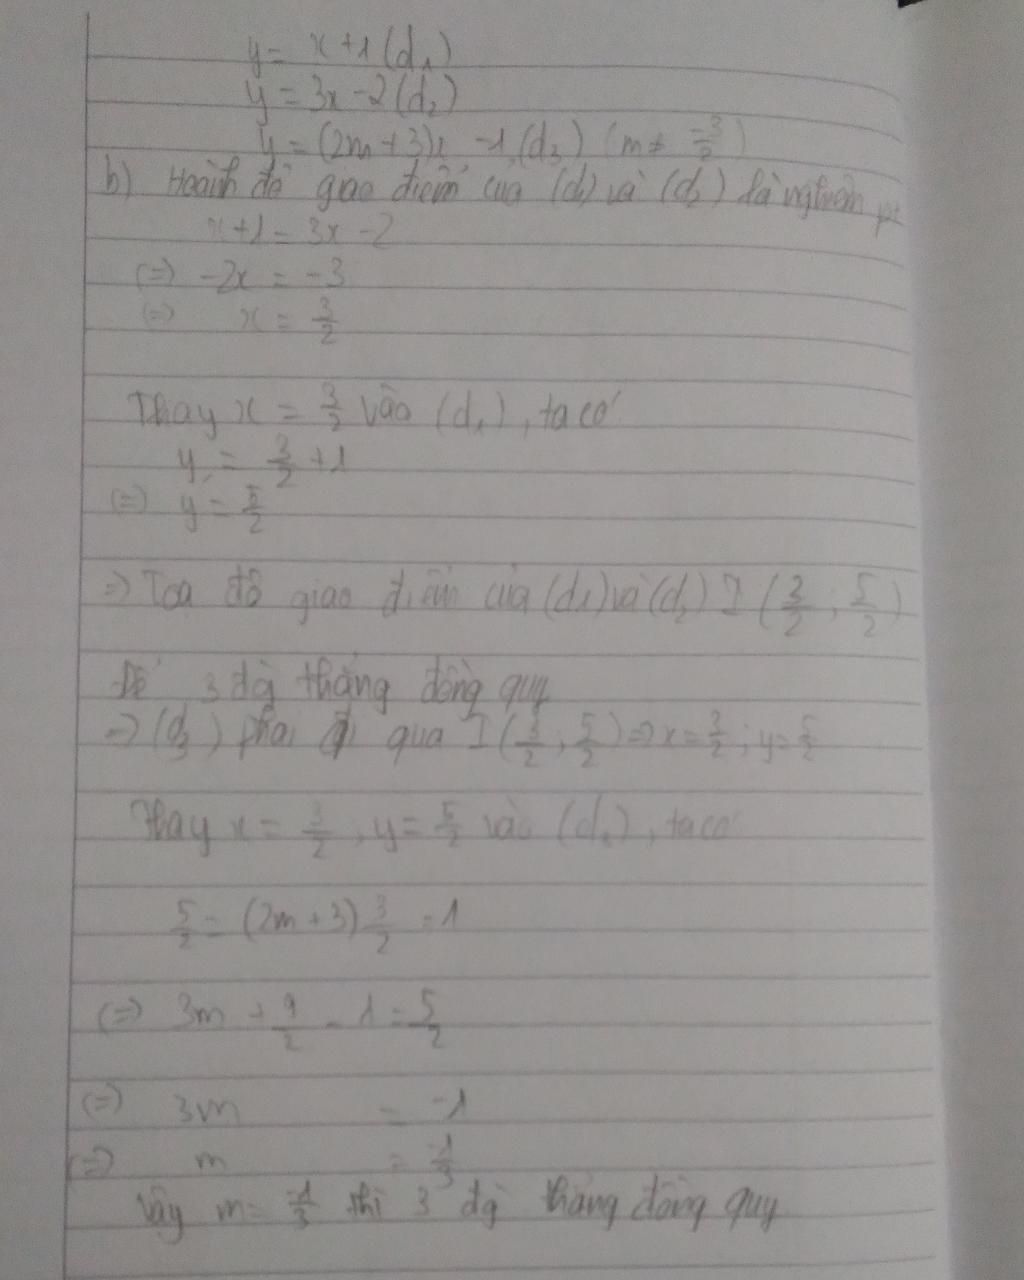 y = x + 1 (d₁)
y = 3x - 2 (d₂)
y = (2m + 3)x - 1 (d₃) (m ≠ -3/2)
b) Hoành độ giao điểm của (d₁) và (d₂) là nghiệm pt
x + 1 = 3x - 2
(=) -2x = -3
(=) x = 3/2
Thay x = 3/2 vào (d₁), ta có
y = 3/2 + 1
(=) y = 5/2
=> Toạ độ giao điểm của (d₁) và (d₂) I (3/2 ; 5/2)
Để 3 đg thẳng đồng quy
=> (d₃) phải đi qua I (3/2 ; 5/2) => x = 3/2 ; y = 5/2
Thay x = 3/2 , y = 5/2 vào , ta có
5/2 = (2m + 3) 3/2 - 1
(=) 3m + 9/2 - 1 = 5/2
(=) 3m = -1
(=) m = -1/3
Vậy m = -1/3 thì 3 đg thẳng đồng quy